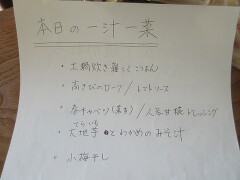 本日の一汁一菜
・土鍋炊き雑こくごはん
・高きびのローフ/トマトソース
・春キャベツ(蒸す)/人参甘糀ドレッシング
・大地芋とわかめのみそ汁
・小梅干し